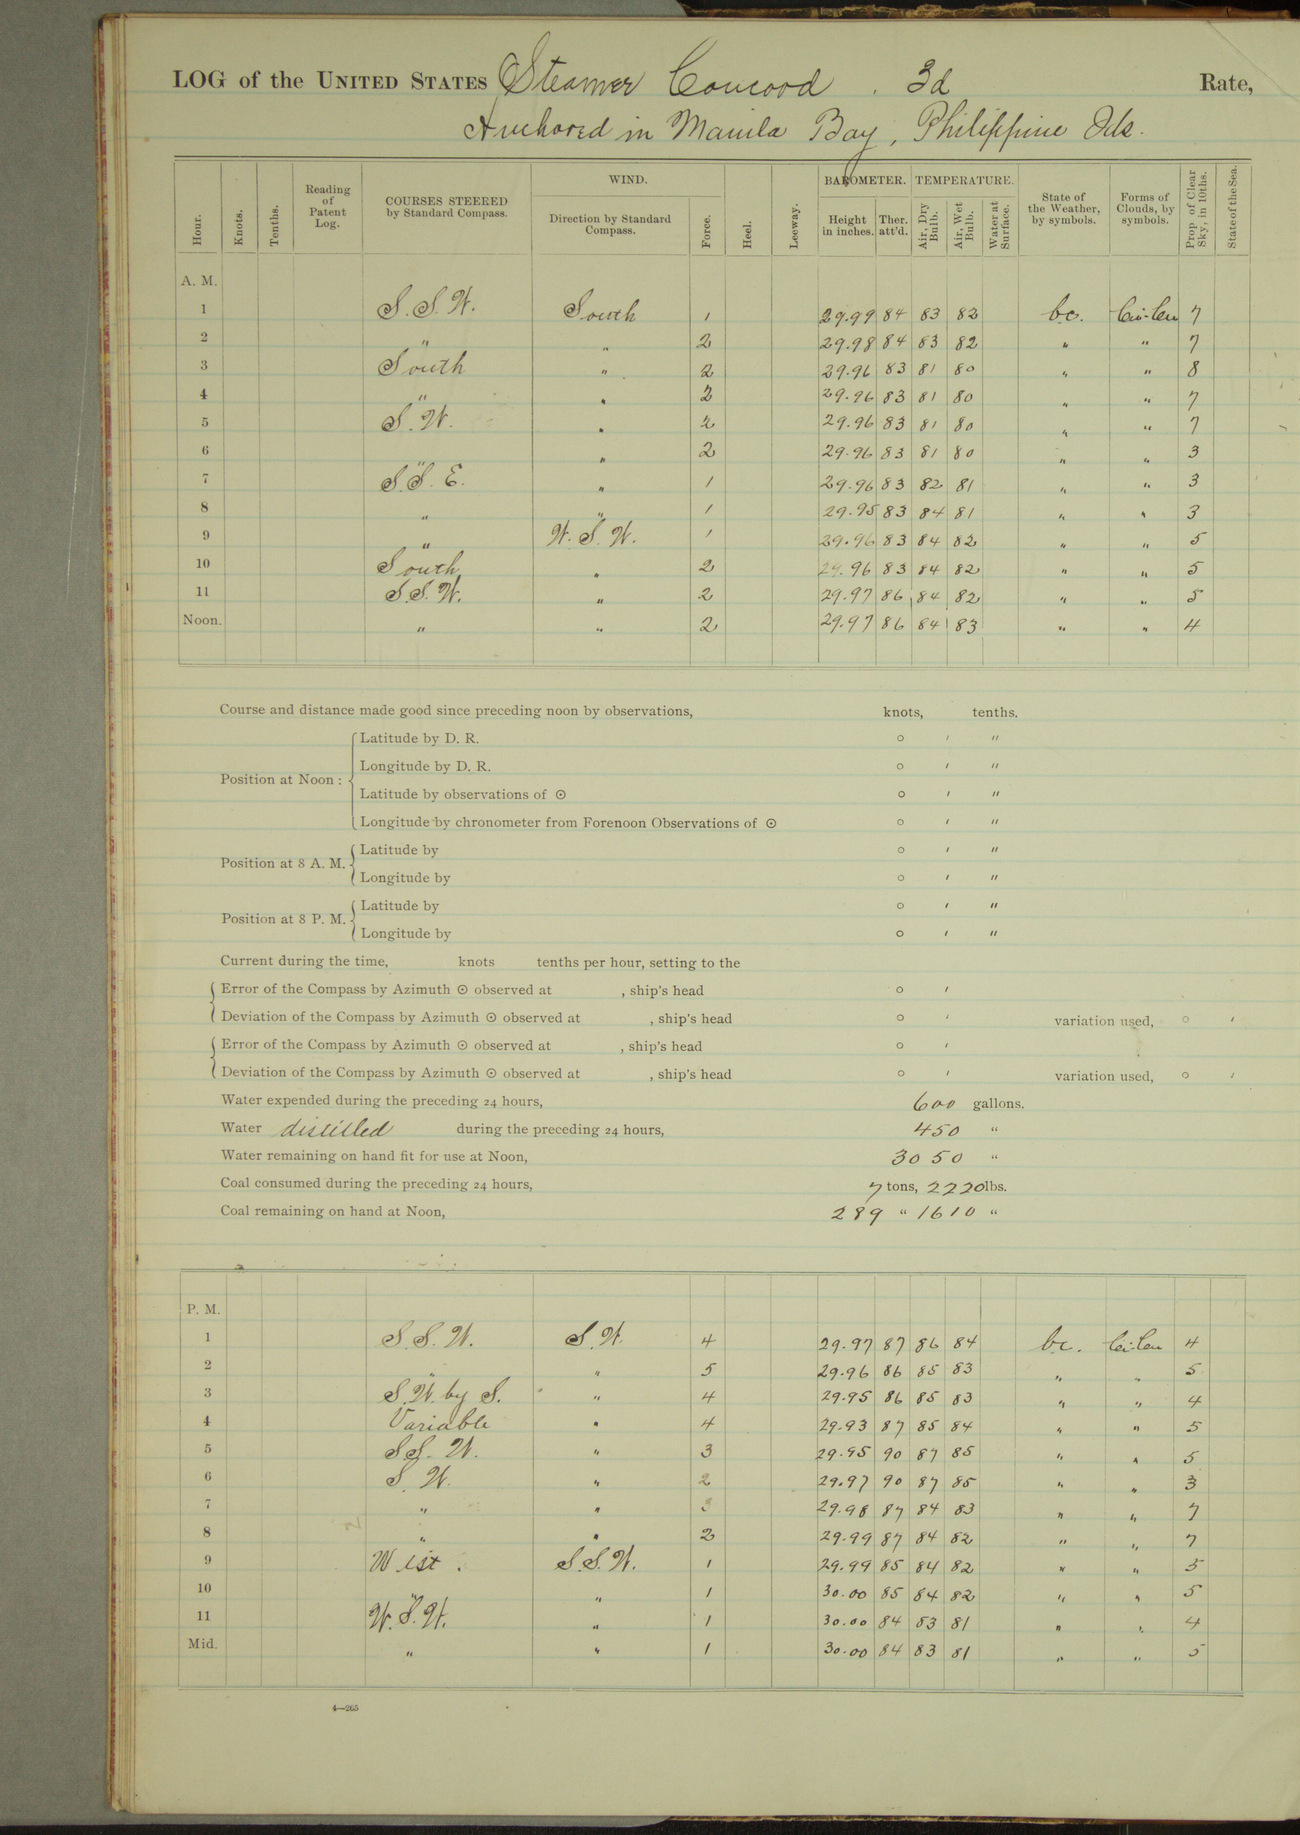 LOG of the UNITED STATES Steamer Concord . 3d Rate,
Anchored in Manila Bay, Philippine Ids.
Hour. Knots. Tenths. Reading of Patent Log. COURSES STEERED by Standard Compass. WIND. Direction by Standard Compass. Force. Heel. Leeway. BAROMETER. Height in inches. Ther. att'd. TEMPERATURE. Air, Dry Bulb. Air, Wet Bulb. Water at Surface. State of the Weather, by symbols. Forms of Clouds, by symbols. Prop. of Clear Sky, in 10ths. State of the Sea.
A. M.
1 S. S. W. South 1 29.99 84 83 82 bc. Cir-Cu 7
2 " " 2 29.98 84 83 82 " " 7
3 South " 2 29.96 83 81 80 " " 8
4 " " 2 29.96 83 81 80 " " 7
5 S. W. " 2 29.96 83 81 80 " " 7
6 " " 2 29.96 83 81 80 " " 3
7 S. S. E. " 1 29.96 83 82 81 " " 3
8 " " 1 29.95 83 84 81 " " 3
9 " W. S. W. 1 29.96 83 84 82 " " 5
10 South " 2 29.96 83 84 82 " " 5
11 S. S. W. " 2 29.97 86 84 82 " " 5
Noon. " " 2 29.97 86 84 83 " " 4
Course and distance made good since preceding noon by observations, knots, tenths.
Position at Noon :
Latitude by D. R. ° ′ ″
Longitude by D. R. ° ′ ″
Latitude by observations of ☉ ° ′ ″
Longitude by chronometer from Forenoon Observations of ☉ ° ′ ″
Position at 8 A. M.
Latitude by ° ′ ″
Longitude by ° ′ ″
Position at 8 P. M.
Latitude by ° ′ ″
Longitude by ° ′ ″
Current during the time, knots tenths per hour, setting to the
Error of the Compass by Azimuth ☉ observed at , ship's head ° ′
Deviation of the Compass by Azimuth ☉ observed at , ship's head ° ′ variation used, ° ′
Error of the Compass by Azimuth ☉ observed at , ship's head ° ′
Deviation of the Compass by Azimuth ☉ observed at , ship's head ° ′ variation used, ° ′
Water expended during the preceding 24 hours, 600 gallons.
Water distilled during the preceding 24 hours, 450 "
Water remaining on hand fit for use at Noon, 3050 "
Coal consumed during the preceding 24 hours, 7 tons, 2220 lbs.
Coal remaining on hand at Noon, 289 " 1610 "
P. M.
1 S. S. W. S. W. 4 29.97 87 86 84 bc. Cir-Cu 4
2 " " 5 29.96 86 85 83 " " 5
3 S. W. by S. " 4 29.95 86 85 83 " " 4
4 Variable " 4 29.93 87 85 84 " " 5
5 S. S. W. " 3 29.95 90 87 85 " " 5
6 S. W. " 2 29.97 90 87 85 " " 3
7 " " 3 29.98 87 84 83 " " 7
8 " " 2 29.99 87 84 82 " " 7
9 West . S. S. W. 1 29.99 85 84 82 " " 5
10 " " 1 30.00 85 84 82 " " 5
11 W. S. W. " 1 30.00 84 83 81 " " 4
Mid. " " 1 30.00 84 83 81 " " 5
4—265